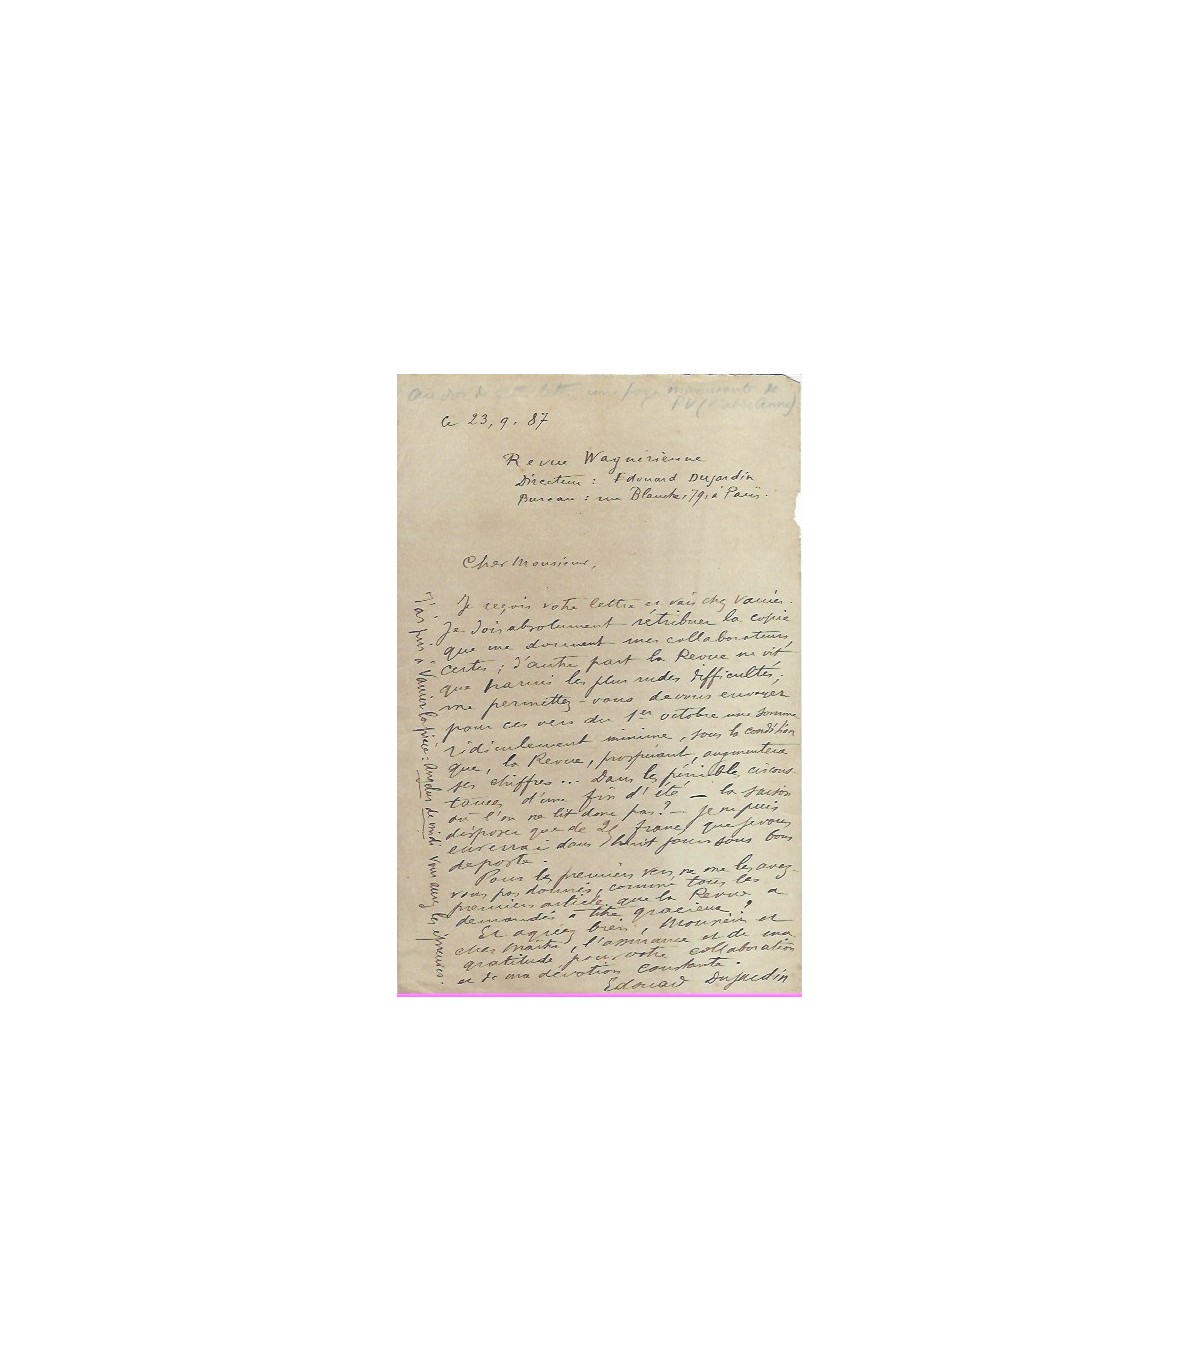 au dos de cette lettre une page manuscrite de
PV (
ce 23, 9. 87
Revue Wagnérienne
Directeur : Edouard Dujardin
Bureau : rue Blanche, 79, à Paris.
Cher Monsieur,
Je reçois votre lettre et vais chez Vanier.
Je dois absolument rétribuer la copie
que me donnent mes collaborateurs,
certes ; d'autre part la Revue ne vit
que parmi les plus rudes difficultés ;
me permettez-vous de vous envoyer
pour ces vers du 1er octobre une somme
ridiculement minime, sous la condition
que, la Revue, prospérant, augmentera
ses chiffres... Dans les pénibles circons-
tances d'une fin d'été — la saison
où l'on ne lit donc pas ? — je ne puis
disposer que de 25 francs que je vous
enverrai dans huit jours sous bons
de poste.
Pour les premiers vers, ne me les avez-
vous pas donnés, comme tous les
premiers articles que la Revue a
demandés à titre gracieux ?
Et agréez bien, Monsieur et
cher Maître, l'assurance et de ma
gratitude pour votre collaboration
et de ma dévotion constante.
Edouard Dujardin
J'ai pris à Vanier la pièce : Angelus de midi vous aurez les épreuves.